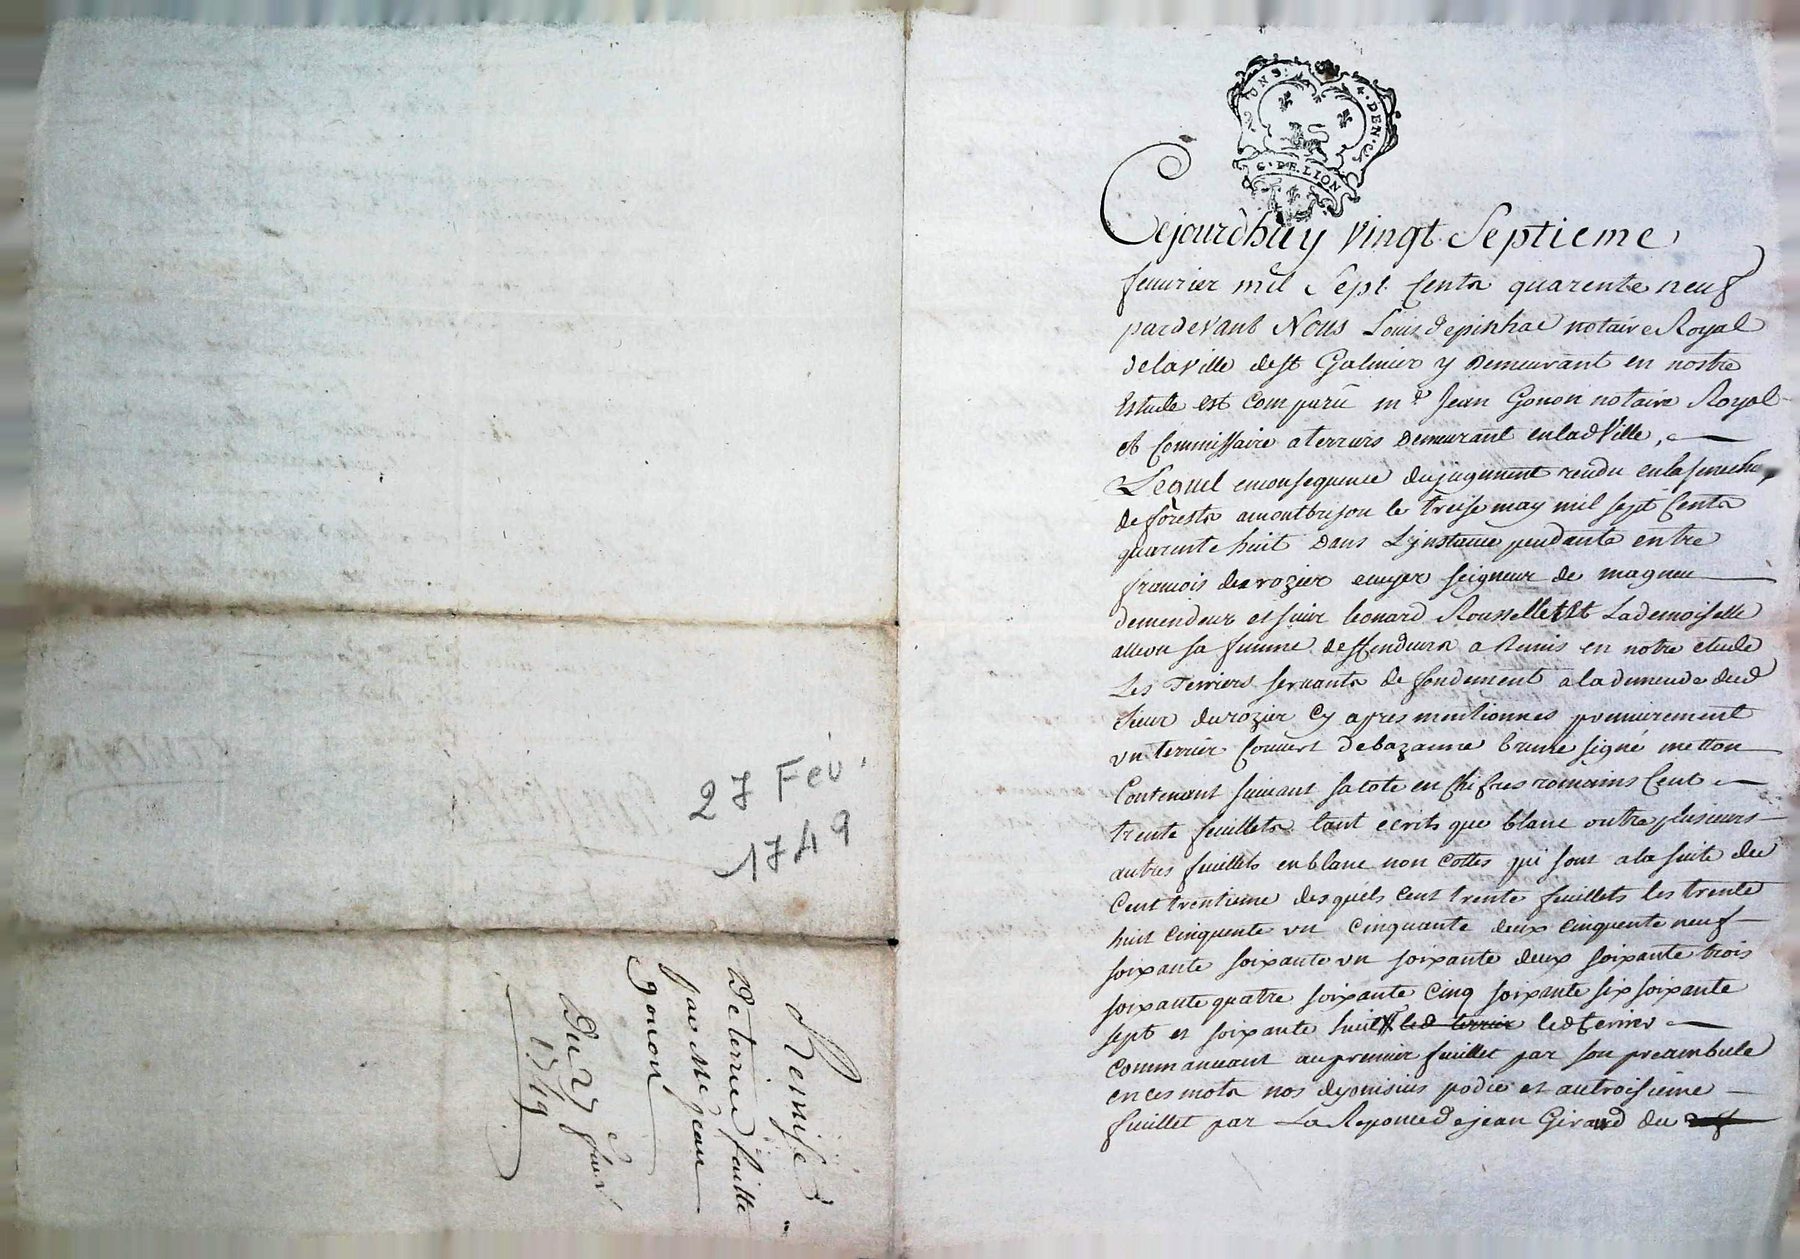 27 Fév.
1749
Remise
De terrier faitte
par Me jean
gonon
Du 27e fevr
1749
2 SONS 4 DEN
G. DE LION
Cejourdhuy vingt Septieme
feuvrier mil Sept Cents quarente neuf
pardevant Nous Louis depinhac notaire Royal
delaville de St Galmier y Demeurant en nostre
Estude est comparü me Jean Gonon notaire Royal
et Commissaire a terriers Demeurant enladville,
Lequel enconsequence dujugement rendu enlasenechee
de forests amontbrison le treise may mil sept Cents
quarente huit Dans L'jnstance pendante entre
francois durozier ecuyer seigneur de magneu
demendeur et sieur leonard Rousselle Et Lademoiselle
alleon sa femme deffendeurs a Remis en notre etude
Les Terriers servants de fondement a lademende dud
sieur durozier Cy apres mentionnes premierement
un terrier Couvert debazanne brune signé metton
Contenant suivant sa cote en Chifres romains Cent
trente feuillets tant ecrits que blanc outre plusieurs
autres feuillets enblanc non cottes qui sont a la suite du
Cent trentieme desquels cent trente feuillets les trente
huit cinquente un cinquante deux cinquente neuf
soixante soixante un soixante deux soixante trois
soixante quatre soixante cinq soixante six soixante
sept et soixante huit led terrier led terrier
commancant au premier feuillet par son preambule
en ces mots nos dyonisius podie et autroisieme
feuillet par La Reponce de jean Girard du